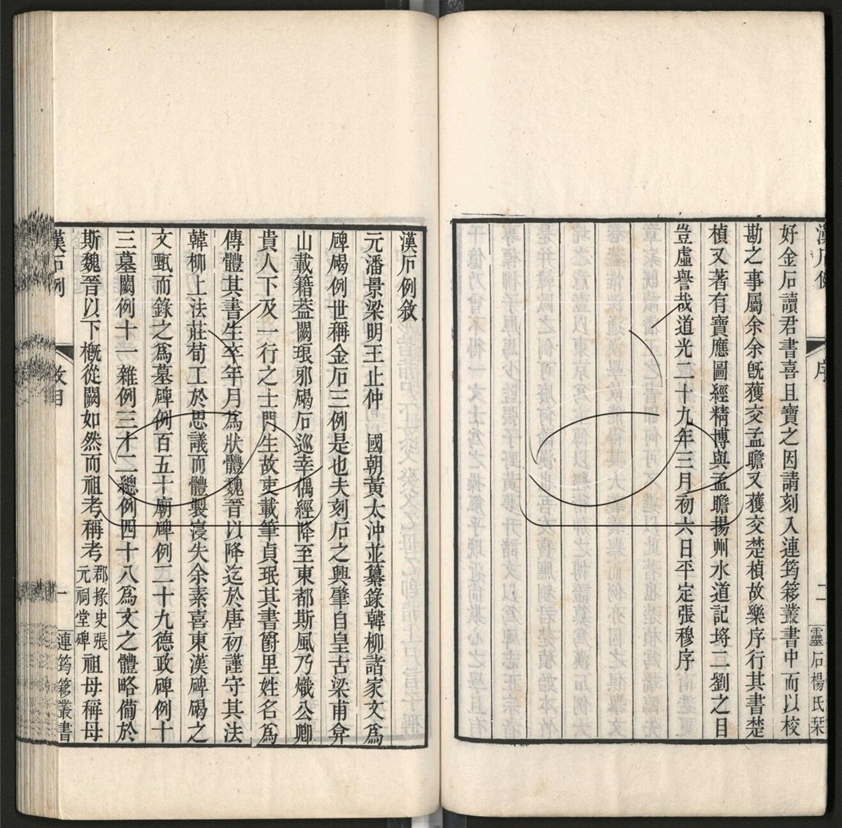 漢石例
序
二
靈石楊氏栞
好金石讀君書喜且寶之因請刻入連筠簃叢書中而以校
勘之事屬余余既獲交孟瞻又獲交楚楨故樂序行其書楚
楨又著有寶應圖經精博與孟瞻揚州水道記埒二劉之目
豈虛譽哉道光二十九年三月初六日平定張穆序
漢石例敘
元潘景梁明王止仲　國朝黃太沖並纂錄韓柳諸家文為
碑碣例世稱金石三例是也夫刻石之興肇自皇古梁甫弇
山載籍葢闕琅邪碣石巡幸偶經降至東都斯風乃熾公卿
貴人下及一行之士門生故吏載筆貞珉其書爵里姓名為
傳體其書生卒年月為狀體魏晉以降迄於唐初謹守其法
韓柳上法莊荀工於思議而體製寖失余素喜東漢碑碣之
文甄而錄之為墓碑例百五十廟碑例二十九德政碑例十
三墓闕例十一雜例三十二總例四十八為文之體略備於
斯魏晉以下概從闕如然而祖考稱考郡掾史張元祠堂碑祖母稱母
漢石例
敘目
一
連筠簃叢書